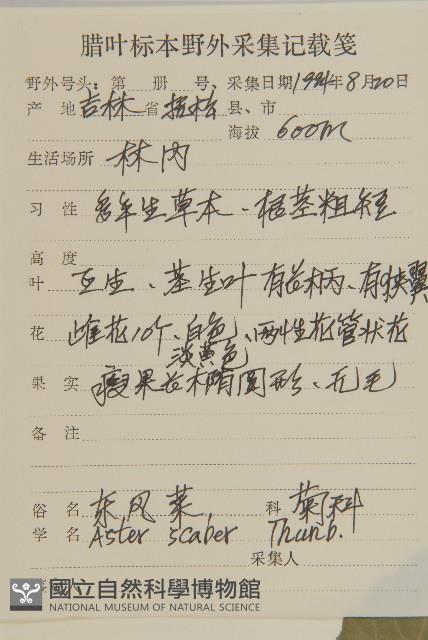 腊叶标本野外采集记载笺
野外号头：第 册 号，采集日期1994年8月20日
产 地 吉林 省 抚松 县、市
海拔 600m
生活场所 林内
习 性 多年生草本、根茎粗短
高 度
叶 互生、基生叶有长柄、有狭翼
花 雌花10个、白色、两性花管状花
淡黄色
果 实 瘦果长椭圆形、无毛
备 注
俗 名 东风菜 科 菊科
学 名 Aster scaber Thunb.
采集人
國立自然科學博物館
NATIONAL MUSEUM OF NATURAL SCIENCE